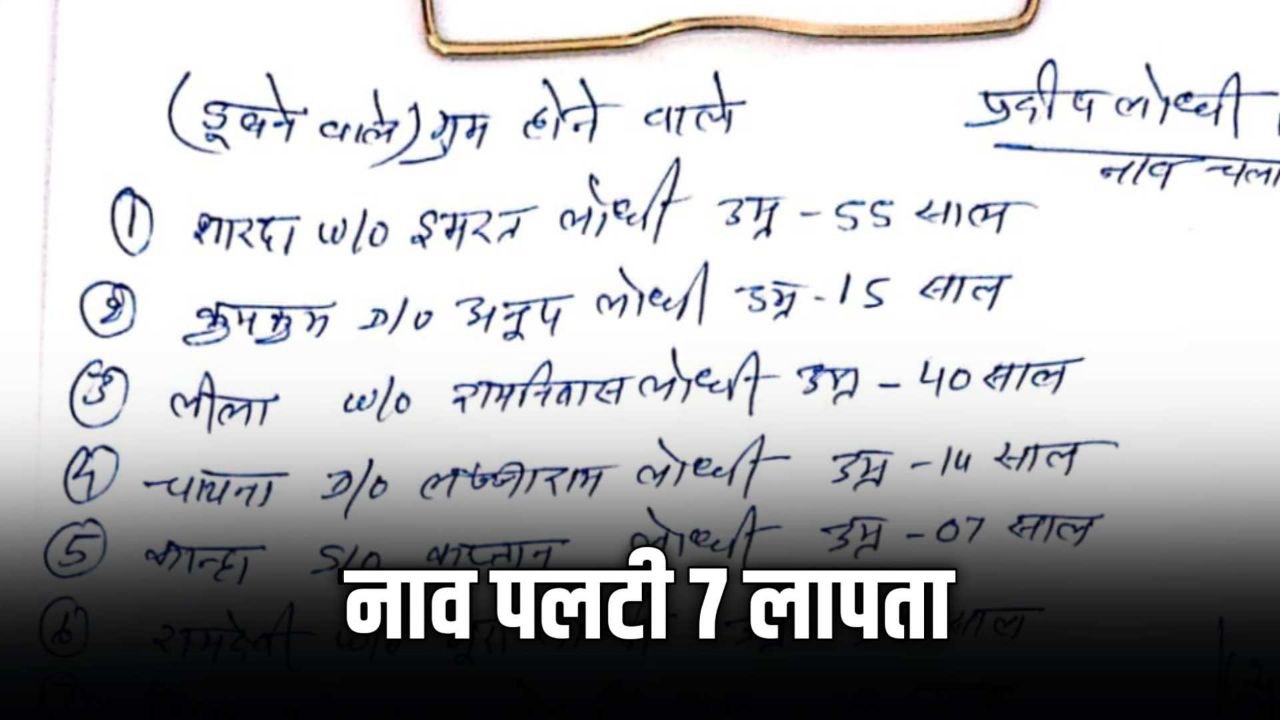 (डूबने वाले) गुम होने वाले
प्रदीप लोधी
नाव चला
① शारदा W/O इमरत लोधी उम्र - 55 साल
② कुमकुम D/O अनूप लोधी उम्र - 15 साल
③ लीला W/O रामनिवास लोधी उम्र - 40 साल
④ चायना D/O लज्जाराम लोधी उम्र - 14 साल
⑤ कान्हा S/O कप्तान लोधी उम्र - 07 साल
⑥ रामदेवी साल
नाव पलटी 7 लापता